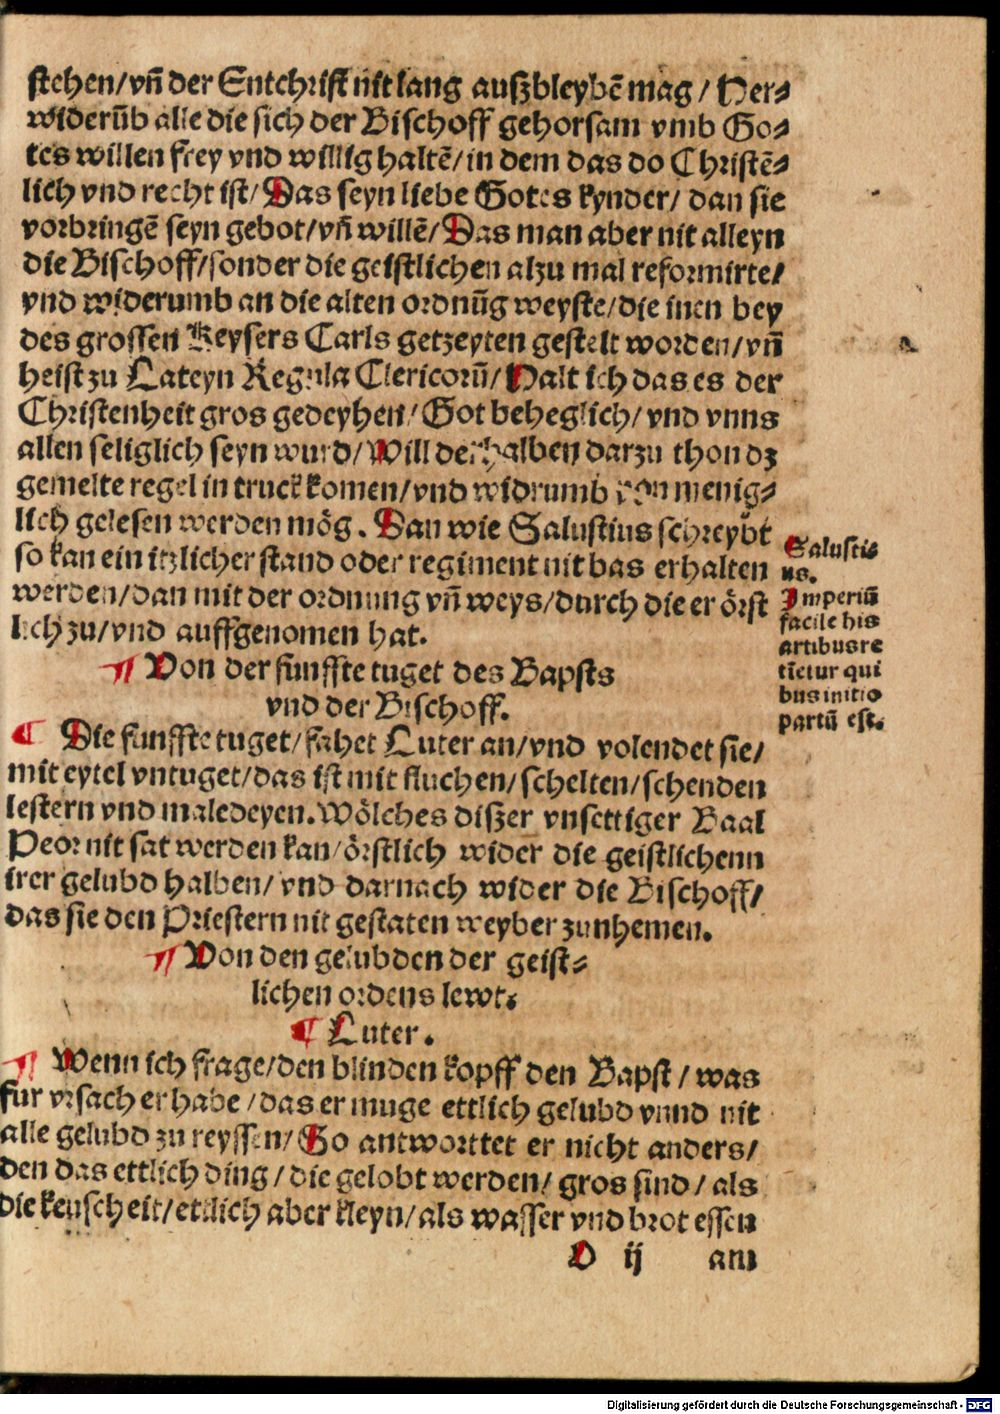 stehen/vn̄ der Entchrist nit lang auszbleybē mag / Her⸗
widerūb alle die sich der Bischoff gehorsam vmb Go⸗
tes willen frey vnd willig haltē/in dem das do Christē⸗
lich vnd recht ist/Das seyn liebe Gotes kynder/ dan sie
vorbringē seyn gebot/vn̄ willē/Das man aber nit alleyn
die Bischoff/sonder die geistlichen alzu mal reformirte/
vnd widerumb an die alten ordnūg weyste/die inen bey
des grossen Keysers Carls getzeyten gestelt worden/vn̄
heist zu Lateyn Regula Clericorū/Halt ich das es der
Christenheit gros gedeyhen/Got beheglich/vnd vnns
allen seliglich seyn wurd/Will derhalben darzu thon dz
gemelte regel in truck komen/vnd widrumb von menig⸗
lich gelesen werden mög. Dan wie Salustius schreybt
so kan ein itzlicher stand oder regiment nit bas erhalten
werden/dan mit der ordnung vn̄ weys/durch die er örst
lich zu/vnd auffgenomen hat.
Salusti⸗
us.
Imperiū
facile his
artibus re
tīetur qui
bus initio
partū est.
¶ Von der funffte tuget des Bapsts
vnd der Bischoff.
¶ Die funffte tuget/fahet Luter an/vnd volendet sie/
mit eytel vntuget/das ist mit fluchen/schelten/schenden
lestern vnd maledeyen. Wölches diszer vnsettiger Baal
Peor nit sat werden kan/örstlich wider die geistlichenn
irer gelubd halben/ vnd darnach wider die Bischoff/
das sie den Priestern nit gestaten weyber zunhemen.
¶ Von den gelubden der geist⸗
lichen ordens lewt.
¶ Luter.
¶ Wenn ich frage/den blinden kopff den Bapst / was
fur vrsach er habe /das er muge ettlich gelubd vnnd nit
alle gelubd zu reyssen/So antworttet er nicht anders/
den das ettlich ding /die gelobt werden/ gros sind/ als
die keuscheit/ettlich aber kleyn/als wasser vnd brot essen
D ij am
Digitalisierung gefördert durch die Deutsche Forschungsgemeinschaft - DFG